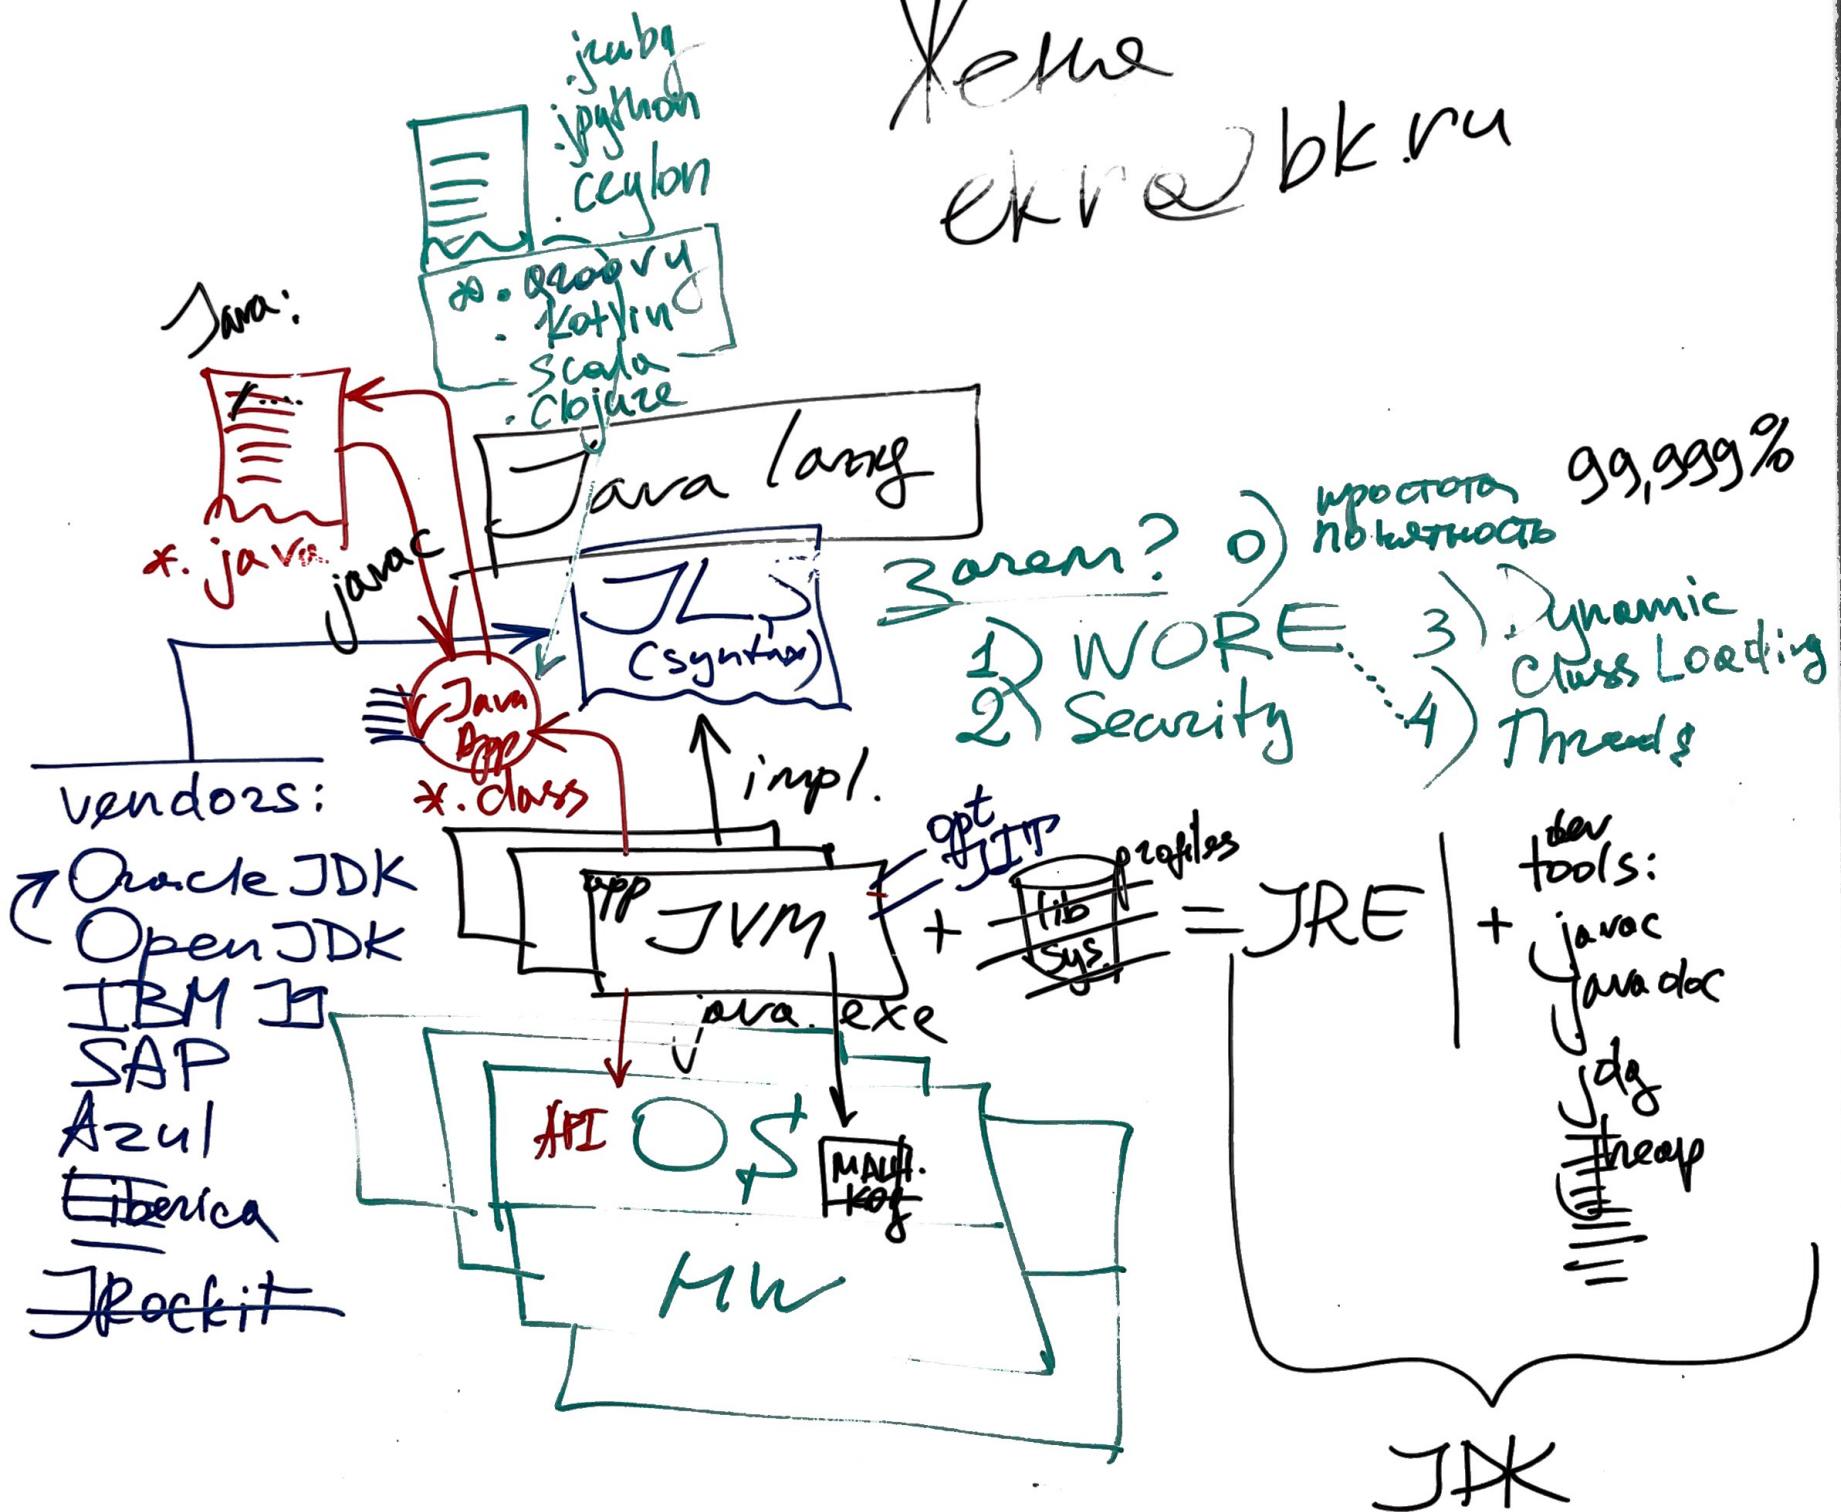 Женя
ekr@bk.ru
.jruby
.jpython
.ceylon
*.groovy
.Kotlin
scala
.clojure
Java:
*.java
javac
Java lang
JLS
(syntax)
Java
App
*.class
impl.
99,999%
Зачем?
0) простота
понятность
1) WORE
2) Security
3) Dynamic
Class Loading
4) Threads
vendors:
Oracle JDK
Open JDK
IBM J9
SAP
Azul
Liberica
JRockit
app
JVM
opt
JIT
+
lib
sys.
profiles
= JRE
+
dev
tools:
javac
javadoc
jdg
java.exe
API
OS
маш.
код
HW
JDK